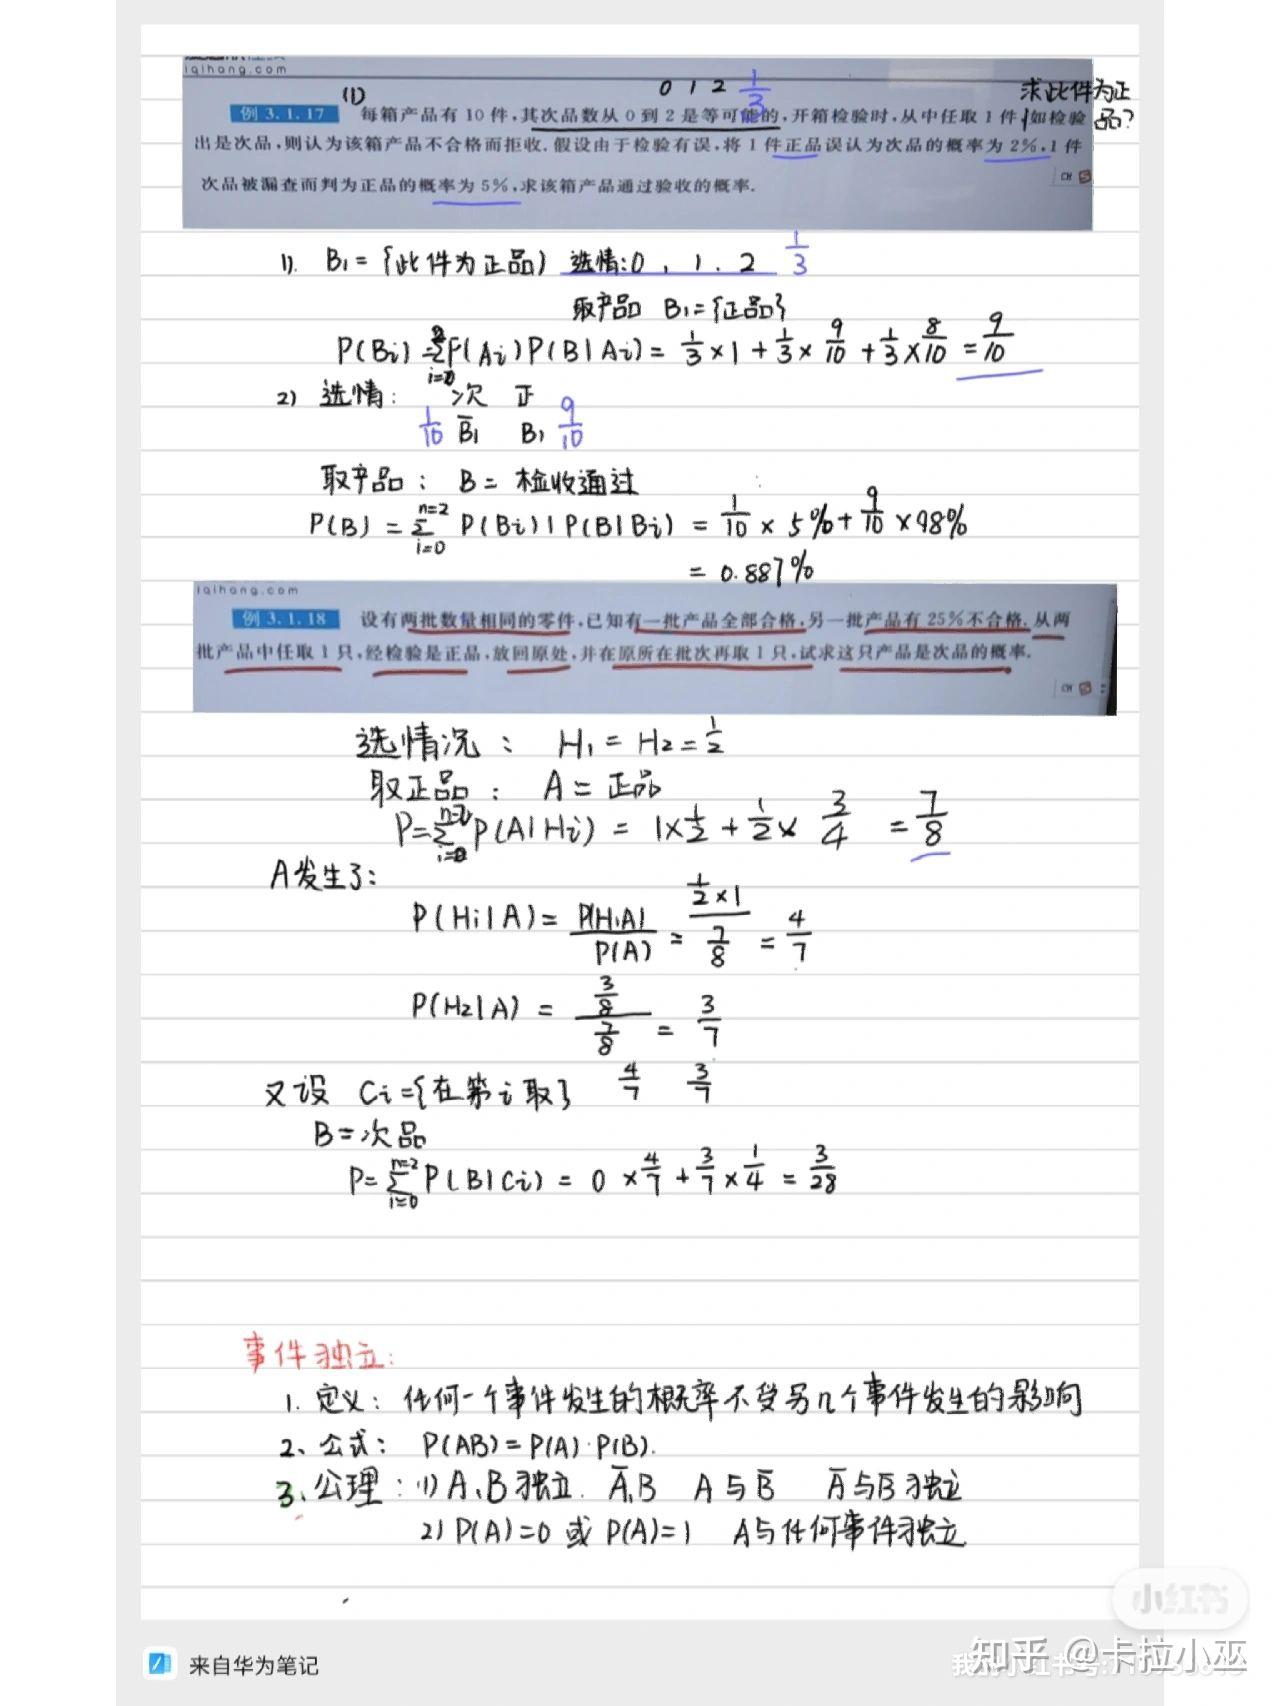 iqihang.com
0 1 2 1/3
(1)
求此件为正品?
例 3.1.17 每箱产品有 10 件,其次品数从 0 到 2 是等可能的,开箱检验时,从中任取 1 件,如检验
出是次品,则认为该箱产品不合格而拒收.假设由于检验有误,将 1 件正品误认为次品的概率为 2%,1 件
次品被漏查而判为正品的概率为 5%,求该箱产品通过验收的概率.
CH S
1). B₁ = {此件为正品) 选情:0 , 1 . 2 1/3
取产品 B₁={正品}
P(Bi) = Σ_{i=0} P(Ai)P(B|Ai) = 1/3×1 + 1/3×9/10 + 1/3×8/10 = 9/10
2) 选情: 次 正
1/10 B̄₁ B₁ 9/10
取产品: B = 检收通过
P(B) = Σ_{i=0}^{n=2} P(Bi)| P(B|Bi) = 1/10 × 5% + 9/10 × 98%
= 0.887%
iqihang.com
例 3.1.18 设有两批数量相同的零件,已知有一批产品全部合格,另一批产品有 25%不合格.从两
批产品中任取 1 只,经检验是正品,放回原处,并在原所在批次再取 1 只,试求这只产品是次品的概率.
CH S
选情况: H₁ = H₂ = 1/2
取正品: A = 正品
P=Σ P(A|Hi) = 1×1/2 + 1/2× 3/4 = 7/8
A发生了:
P(Hi|A) = P(H₁A)/P(A) = (1/2×1)/(7/8) = 4/7
P(H₂|A) = (3/8)/(7/8) = 3/7
又设 Ci={在第i取} 4/7 3/7
B=次品
P=Σ_{i=0}^{n=2} P(B|Ci) = 0 ×4/7 + 3/7×1/4 = 3/28
事件独立:
1. 定义: 任何一个事件发生的概率不受另几个事件发生的影响
2、公式: P(AB)=P(A)·P(B).
3、公理: 1) A、B独立. Ā、B A与B̄ Ā与B̄独立
2) P(A)=0 或 P(A)=1 A与任何事件独立
小红书
来自华为笔记
知乎 @卡拉小巫